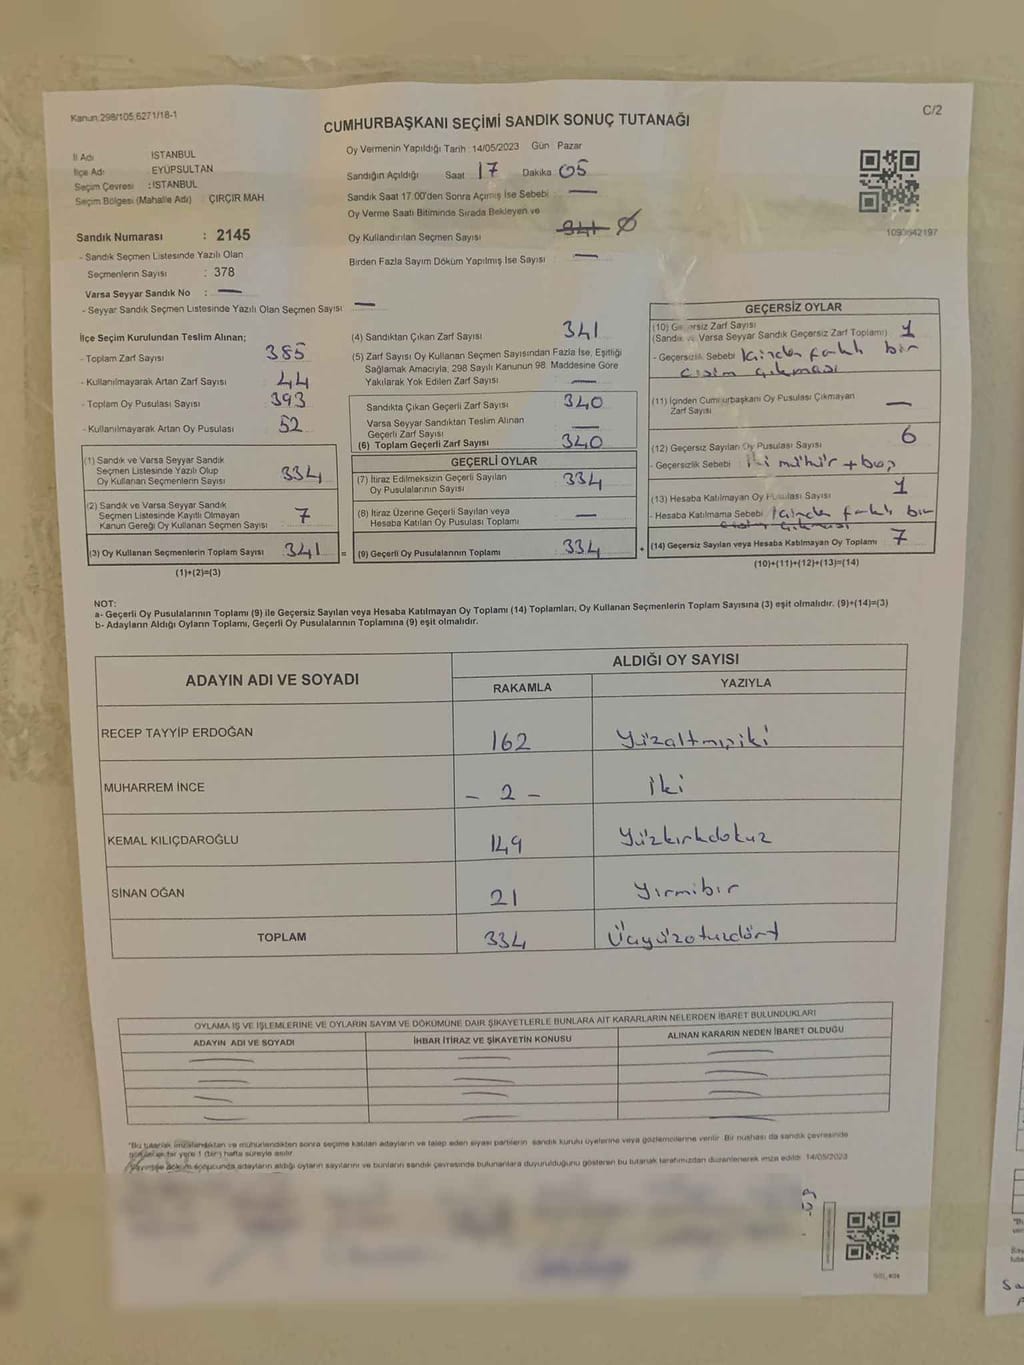 Kanun:298/105,6271/18-1
C/2
CUMHURBAŞKANI SEÇİMİ SANDIK SONUÇ TUTANAĞI
İl Adı İSTANBUL
İlçe Adı EYÜPSULTAN
Seçim Çevresi : İSTANBUL
Seçim Bölgesi (Mahalle Adı) ÇIRÇIR MAH
Sandık Numarası : 2145
- Sandık Seçmen Listesinde Yazılı Olan
Seçmenlerin Sayısı : 378
Varsa Seyyar Sandık No : —
- Seyyar Sandık Seçmen Listesinde Yazılı Olan Seçmen Sayısı —
Oy Vermenin Yapıldığı Tarih :14/05/2023 Gün Pazar
Sandığın Açıldığı Saat 17 Dakika 05
Sandık Saat 17.00'den Sonra Açılmış İse Sebebi —
Oy Verme Saati Bitiminde Sırada Bekleyen ve
Oy Kullandırılan Seçmen Sayısı 341 Ø
Birden Fazla Sayım Döküm Yapılmış İse Sayısı —
1093642197
İlçe Seçim Kurulundan Teslim Alınan;
- Toplam Zarf Sayısı 385
- Kullanılmayarak Artan Zarf Sayısı 44
- Toplam Oy Pusulası Sayısı 393
- Kullanılmayarak Artan Oy Pusulası 52
(1) Sandık ve Varsa Seyyar Sandık
Seçmen Listesinde Yazılı Olup
Oy Kullanan Seçmenlerin Sayısı 334
(2) Sandık ve Varsa Seyyar Sandık
Seçmen Listesinde Kayıtlı Olmayan
Kanun Gereği Oy Kullanan Seçmen Sayısı 7
(3) Oy Kullanan Seçmenlerin Toplam Sayısı 341 =
(1)+(2)=(3)
(4) Sandıktan Çıkan Zarf Sayısı 341
(5) Zarf Sayısı Oy Kullanan Seçmen Sayısından Fazla İse, Eşitliği
Sağlamak Amacıyla, 298 Sayılı Kanunun 98. Maddesine Göre
Yakılarak Yok Edilen Zarf Sayısı —
Sandıkta Çıkan Geçerli Zarf Sayısı 340
Varsa Seyyar Sandıktan Teslim Alınan
Geçerli Zarf Sayısı —
(6) Toplam Geçerli Zarf Sayısı 340
GEÇERLİ OYLAR
(7) İtiraz Edilmeksizin Geçerli Sayılan
Oy Pusulalarının Sayısı 334
(8) İtiraz Üzerine Geçerli Sayılan veya
Hesaba Katılan Oy Pusulası Toplamı —
(9) Geçerli Oy Pusulalarının Toplamı 334 +
GEÇERSİZ OYLAR
(10) Geçersiz Zarf Sayısı
(Sandık ve Varsa Seyyar Sandık Geçersiz Zarf Toplamı) 1
- Geçersizlik Sebebi İçinden farklı bir
cisim çıkması
(11) İçinden Cumhurbaşkanı Oy Pusulası Çıkmayan
Zarf Sayısı —
(12) Geçersiz Sayılan Oy Pusulası Sayısı 6
- Geçersizlik Sebebi : iki mühür + boş
(13) Hesaba Katılmayan Oy Pusulası Sayısı 1
- Hesaba Katılmama Sebebi İçinden farklı bir
cisim çıkması
(14) Geçersiz Sayılan veya Hesaba Katılmayan Oy Toplamı 7
(10)+(11)+(12)+(13)=(14)
NOT:
a- Geçerli Oy Pusulalarının Toplamı (9) ile Geçersiz Sayılan veya Hesaba Katılmayan Oy Toplamı (14) Toplamları, Oy Kullanan Seçmenlerin Toplam Sayısına (3) eşit olmalıdır. (9)+(14)=(3)
b- Adayların Aldığı Oyların Toplamı, Geçerli Oy Pusulalarının Toplamına (9) eşit olmalıdır.
ADAYIN ADI VE SOYADI
ALDIĞI OY SAYISI
RAKAMLA YAZIYLA
RECEP TAYYİP ERDOĞAN 162 Yüzaltmışiki
MUHARREM İNCE - 2 - İki
KEMAL KILIÇDAROĞLU 149 Yüzkırkdokuz
SİNAN OĞAN 21 Yirmibir
TOPLAM 334 Üçyüzotuzdört
OYLAMA İŞ VE İŞLEMLERİNE VE OYLARIN SAYIM VE DÖKÜMÜNE DAİR ŞİKAYETLERLE BUNLARA AİT KARARLARIN NELERDEN İBARET BULUNDUKLARI
ADAYIN ADI VE SOYADI İHBAR İTİRAZ VE ŞİKAYETİN KONUSU ALINAN KARARIN NEDEN İBARET OLDUĞU
*Bu tutanak imzalandıktan ve mühürlendikten sonra seçime katılan adayların ve talep eden siyasi partilerin sandık kurulu üyelerine veya gözlemcilerine verilir. Bir nüshası da sandık çevresinde
görülecek bir yere 1 (bir) hafta süreyle asılır.
döküm sonucunda adayların aldığı oyların sayılarını ve bunların sandık çevresinde bulunanlara duyurulduğunu gösteren bu tutanak tarafımızdan düzenlenerek imza edildi. 14/05/2023